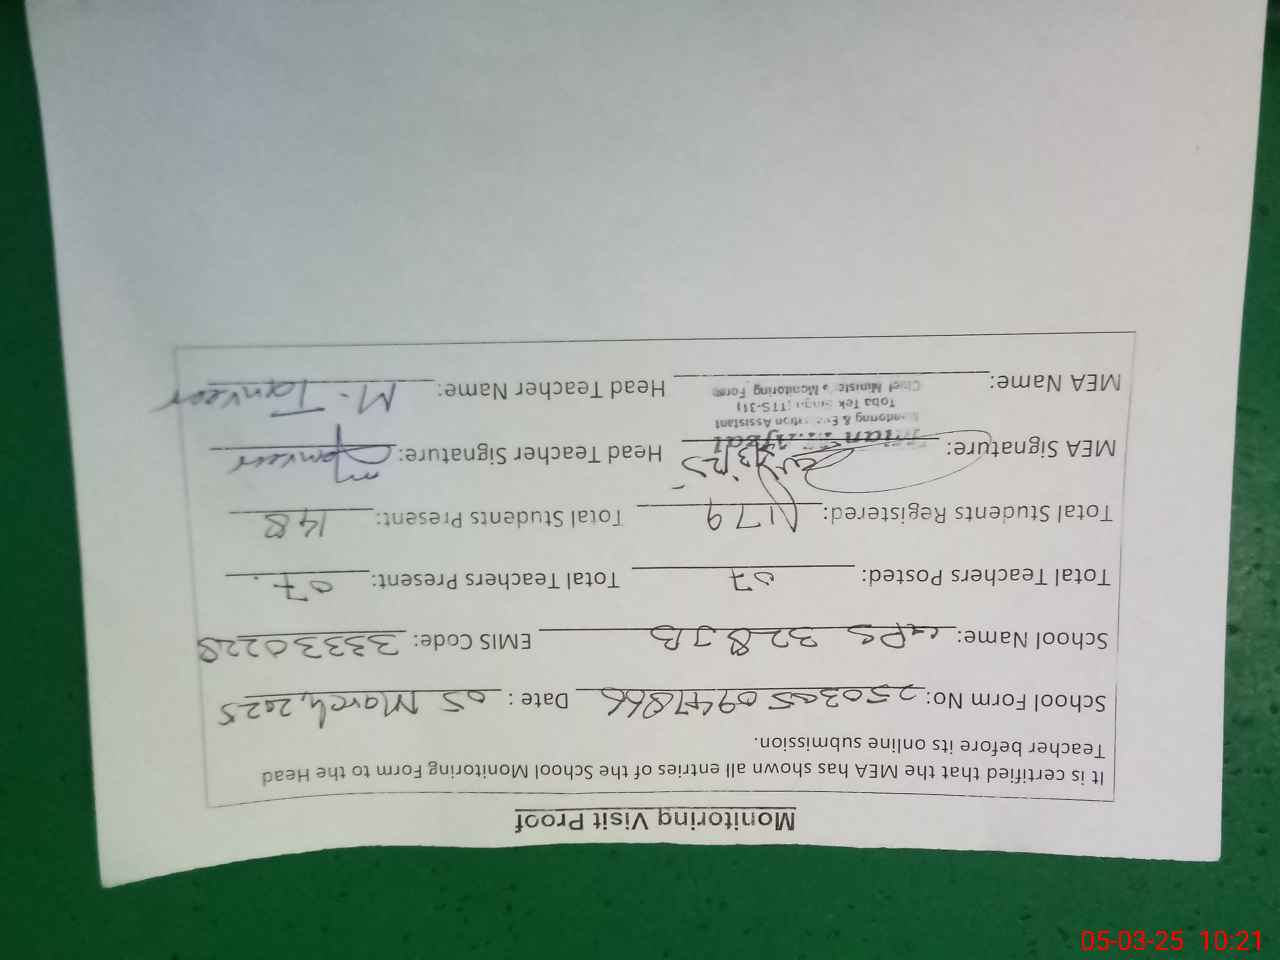 Monitoring Visit Proof
It is certified that the MEA has shown all entries of the School Monitoring Form to the Head
Teacher before its online submission.
School Form No: 250305 0947866 Date : 05 March, 2025
School Name: GPS 328 JB EMIS Code: 33330228
Total Teachers Posted: 07 Total Teachers Present: 07
Total Students Registered: 179 Total Students Present: 148
MEA Signature: Head Teacher Signature: M Tanveer
Monitoring & Evaluation Assistant
Toba Tek Singh (TTS-31)
Chief Minister's Monitoring Force
MEA Name: Head Teacher Name: M. Tanveer
05-03-25 10:21